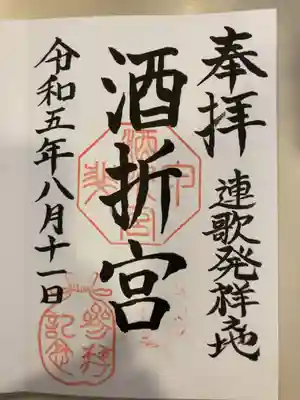 奉拝
連歌発祥地
酒折宮
令和五年八月十一日